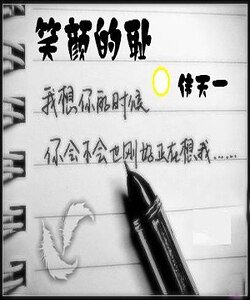 笑颜的耻
信天一
我想你的时候
你会不会也刚好正在想我……